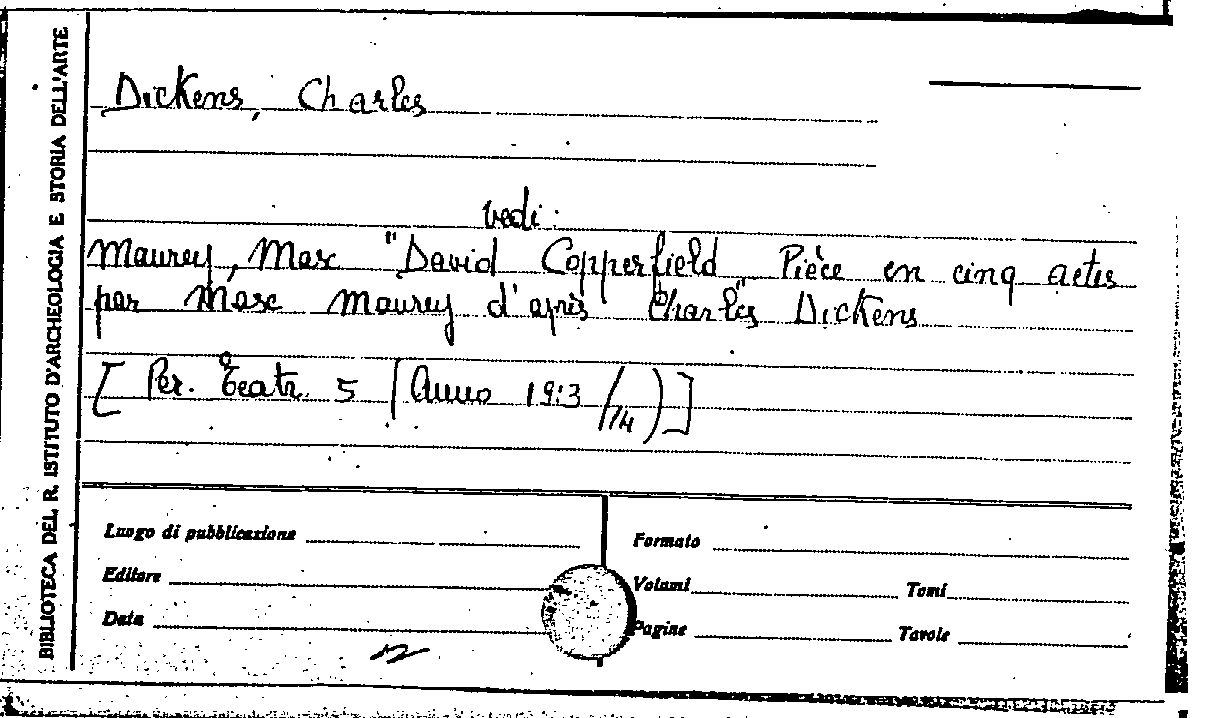 BIBLIOTECA DEL R. ISTITUTO D'ARCHEOLOGIA E STORIA DELL'ARTE
Dickens, Charles
vedi:
Maurey, Max "David Copperfield" Pièce en cinq actes
par Max Maurey d'après Charles Dickens
[ Per. Teatr. 5 (Anno 19:3/14) ]
Luogo di pubblicazione
Formato
Editore
Volumi Tomi
Data
Pagine Tavole